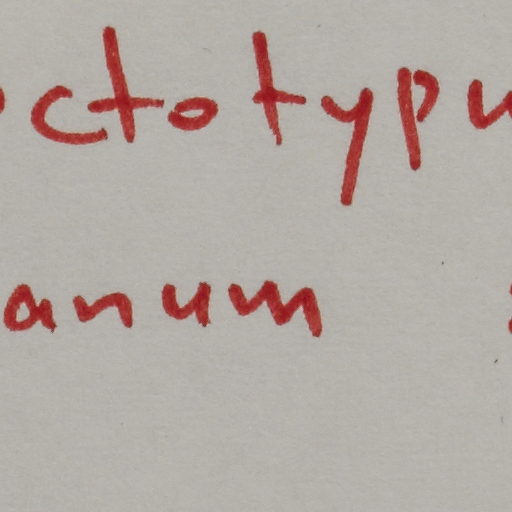 octotypu
anum